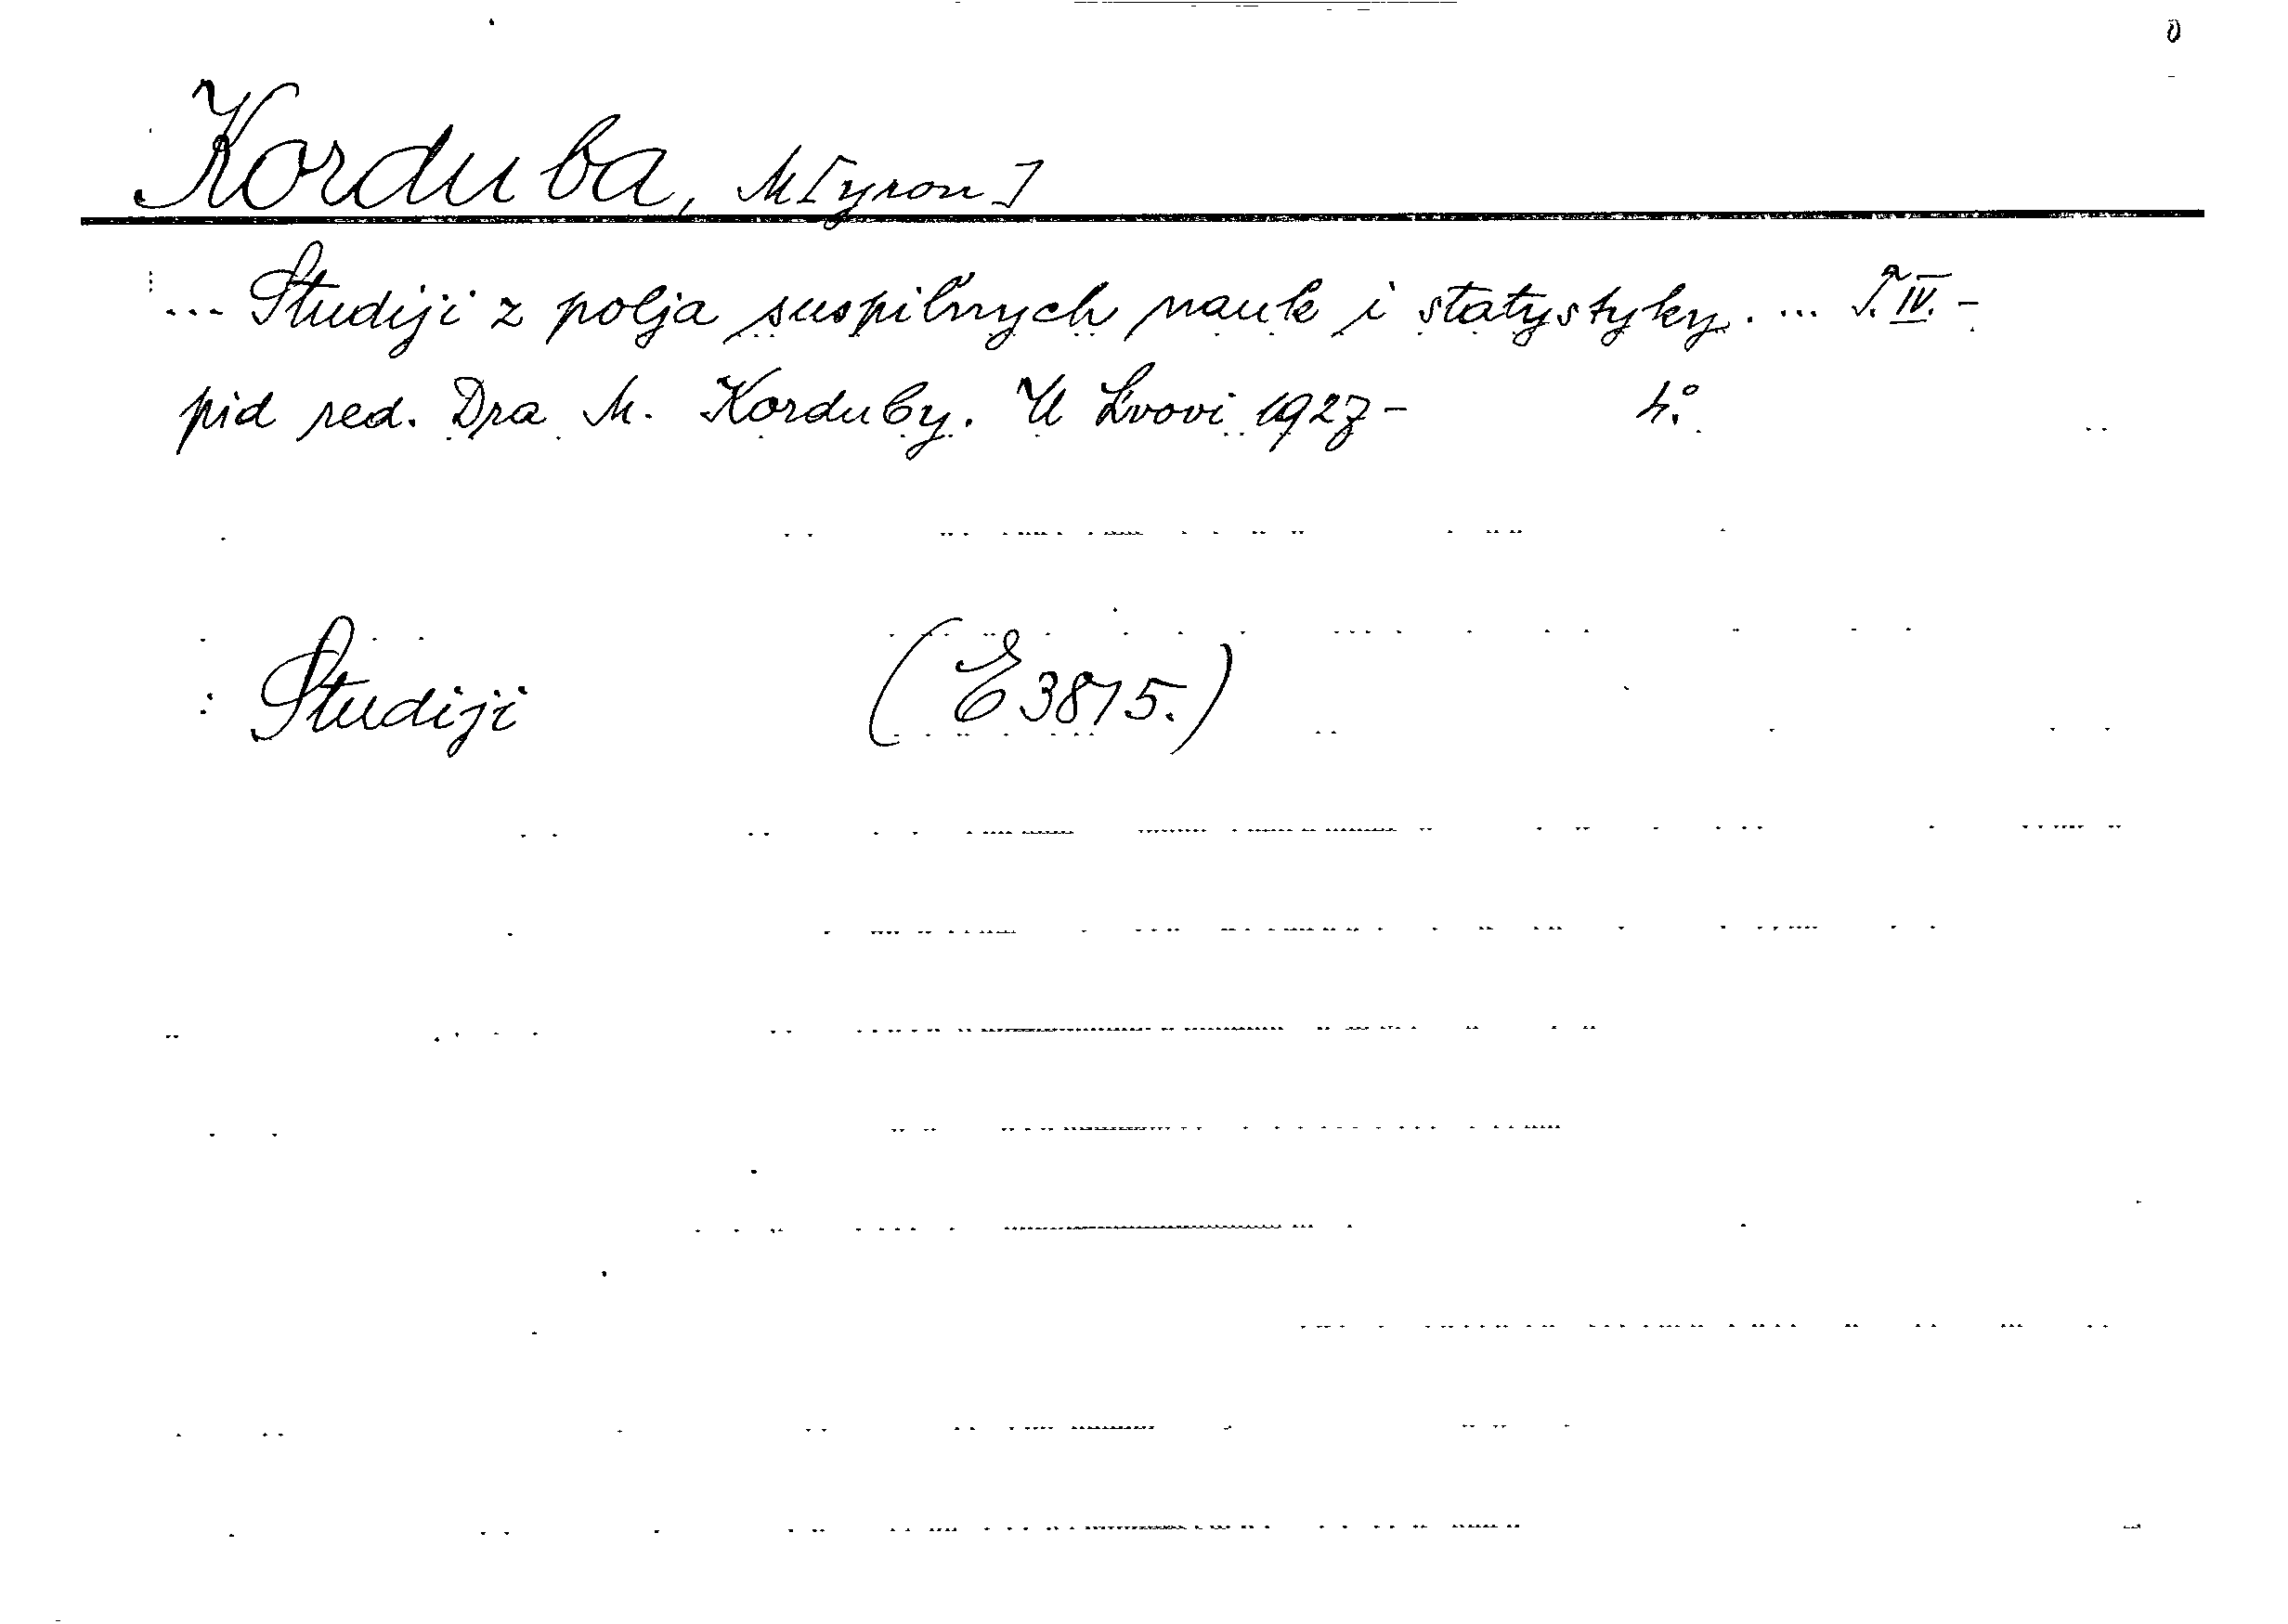 Korduba, M[yron]
... Studiji z polja suspil'nych nauk i statystyky. ... T. IV.-
pid red. Dra M. Korduby. U L'vovi 1927- 4°.
Studiji (E 3815.)